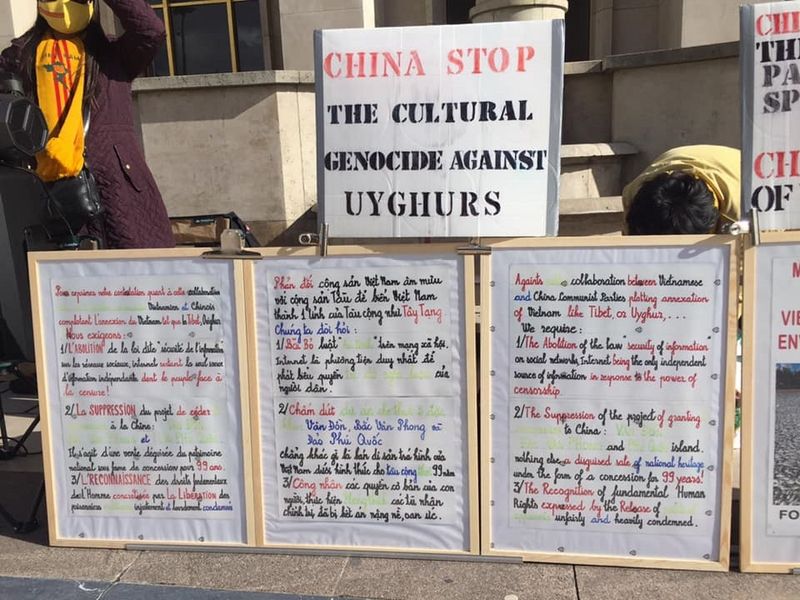 CHINA STOP
THE CULTURAL
GENOCIDE AGAINST
UYGHURS
CHI
THE
PA
SP
CH
OF
Nous exigeons :
1/L'ABOLITION de la loi dite "sécurité de l'information"
sur les réseaux sociaux, internet étant la seul source
d'information indépendante dont le peuple face à
la censure!
2/La SUPPRESSION du projet de céder
à la Chine :
et
Il s'agit d'une vente déguisée du patrimoine
national sous forme de concession pour 99 ans.
3/L'RECONNAISSANCE des droits fondamentaux
de l'Homme concrétisée par La LIBÉRATION des
prisonniers injustement et lourdement condamnés
Phản đối cộng sản Việt Nam âm mưu
với cộng sản Tàu để biến Việt Nam
thành 1 tỉnh của Tàu cộng như Tây Tạng
Chúng ta đòi hỏi :
1/Bãi Bỏ luật trên mạng xã hội.
Internet là phương tiện duy nhất để
phát biểu quyền
người dân.
2/Chấm dứt
Vân Đồn, Bắc Vân Phong và
Đảo Phú Quốc
chẳng khác gì là bán di sản trá hình của
Việt Nam dưới hình thức cho tàu cộng 99 năm
3/Công nhận các quyền cơ bản của con
người, thực hiện các tù nhân
chính trị đã bị kết án nặng nề, oan ức.
Againts collaboration between Vietnamese
and China Communist Parties plotting annexation
of Vietnam like Tibet, or Uyghur, ...
We require :
1/The Abolition of the law "security of information"
on social networks, Internet being the only independent
source of information in response to the power of
censorship.
2/The Suppression of the project of granting
to China :
and island.
nothing else a disguised sale of national heritage
under the form of a concession for 99 years!
3/The Recognition of fundamental Human
Rights expressed by the Release of
unfairly and heavily condemned.
M
VIE
ENV
FO